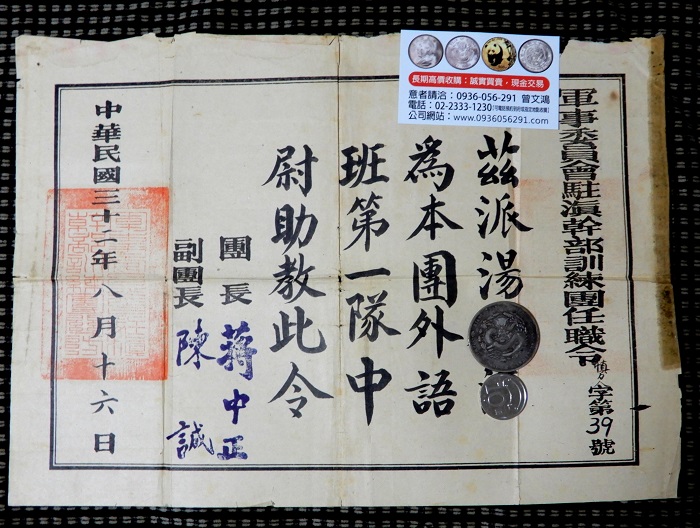 長期高價收購：誠實買賣．現金交易
意者請洽：0936-056-291 曾文鴻
電話：02-2333-1230
公司網站：www.0936056291.com
軍事委員會駐滇幹部訓練團任職令
字第39號
茲派湯
為本團外語
班第一隊中
尉助教此令
團長 蔣中正
副團長 陳誠
中華民國三十二年八月十六日